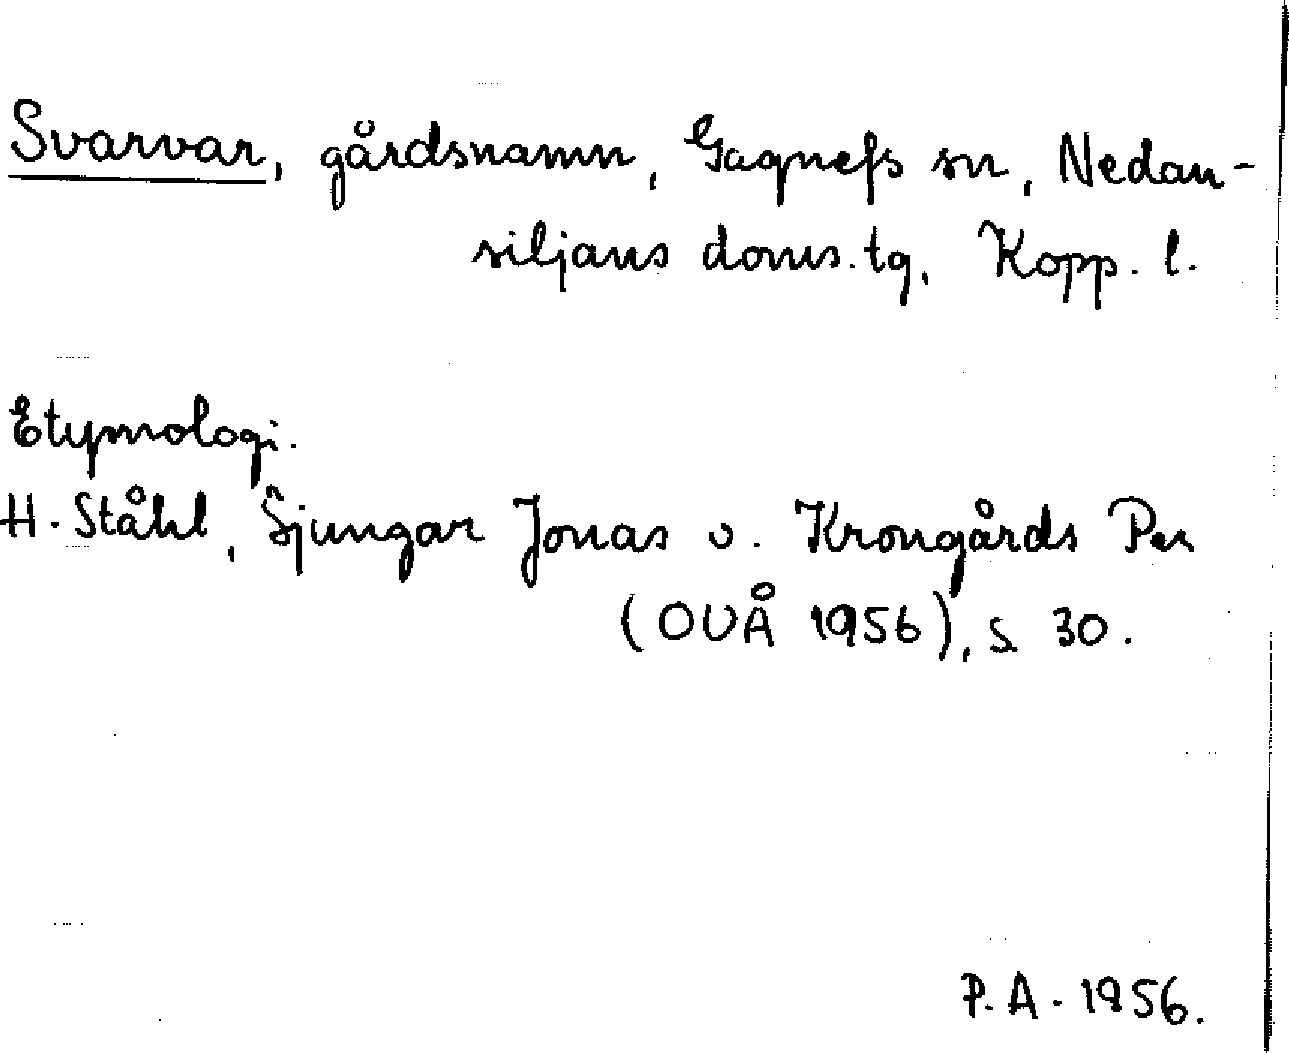 Svarvar, gårdsnamn, Gagnefs sn, Nedan-
siljans doms.tg, Kopp. l.
Etymologi.
H. Ståhl, Sjungar Jonas o. Krongårds Per
(OUÅ 1956), s 30.
P. A. 1956.